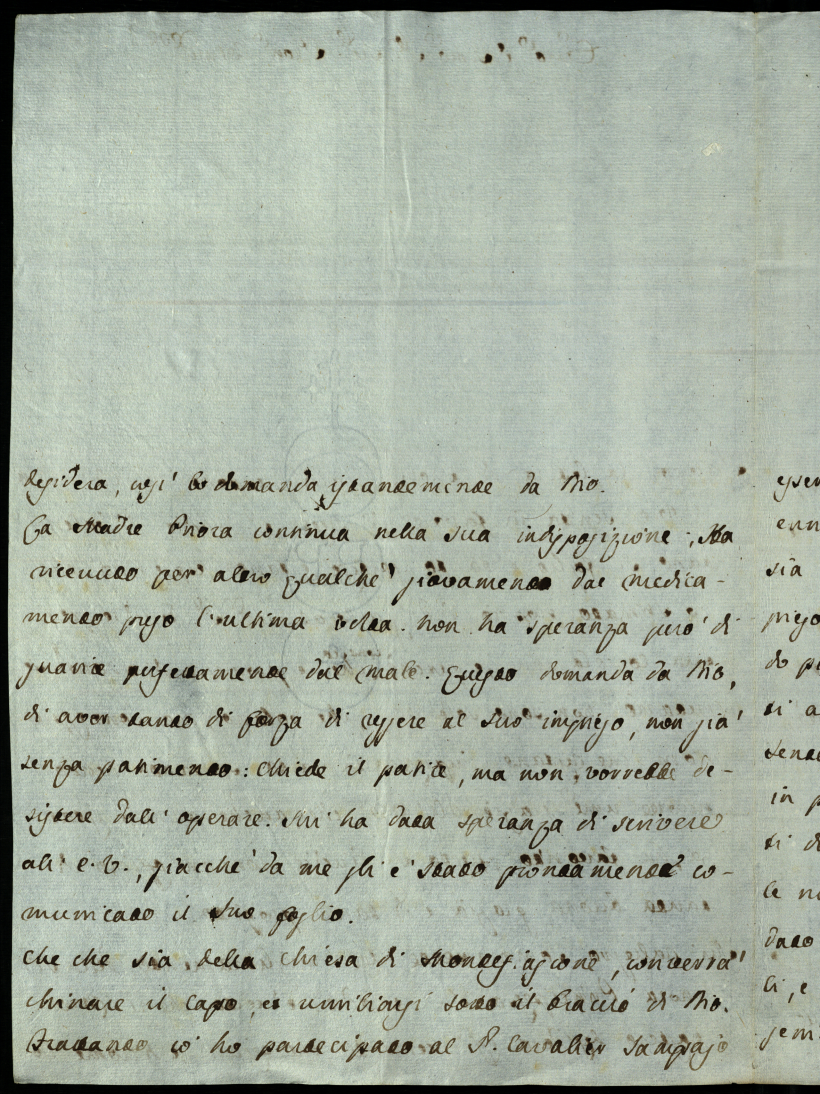 desidera, così lo domanda istantemente da Dio.
La Madre Priora continua nella sua indisposizione; Ha
ricevuto per altro qualche giovamento dal medica-
mento preso l'ultima volta. non ha speranza però di
guarire perfettamente dal male. Questo domanda da Dio,
di aver tanto di forza di reggere al suo impiego, non già
senza patimento: chiede il patire, ma non vorrebbe de-
sistere dall'operare. Mi ha data speranza di scrivere
all' E. V., giacchè da me gli è stato prontamente co-
municato il suo foglio.
Che che sia della Chiesa di Montefiascone, converrà
chinare il capo, et umiliarsi sotto il braccio di Dio.
Trattanto io ho partecipato al S.r Cavalier
sia
do
in
dato
li, e